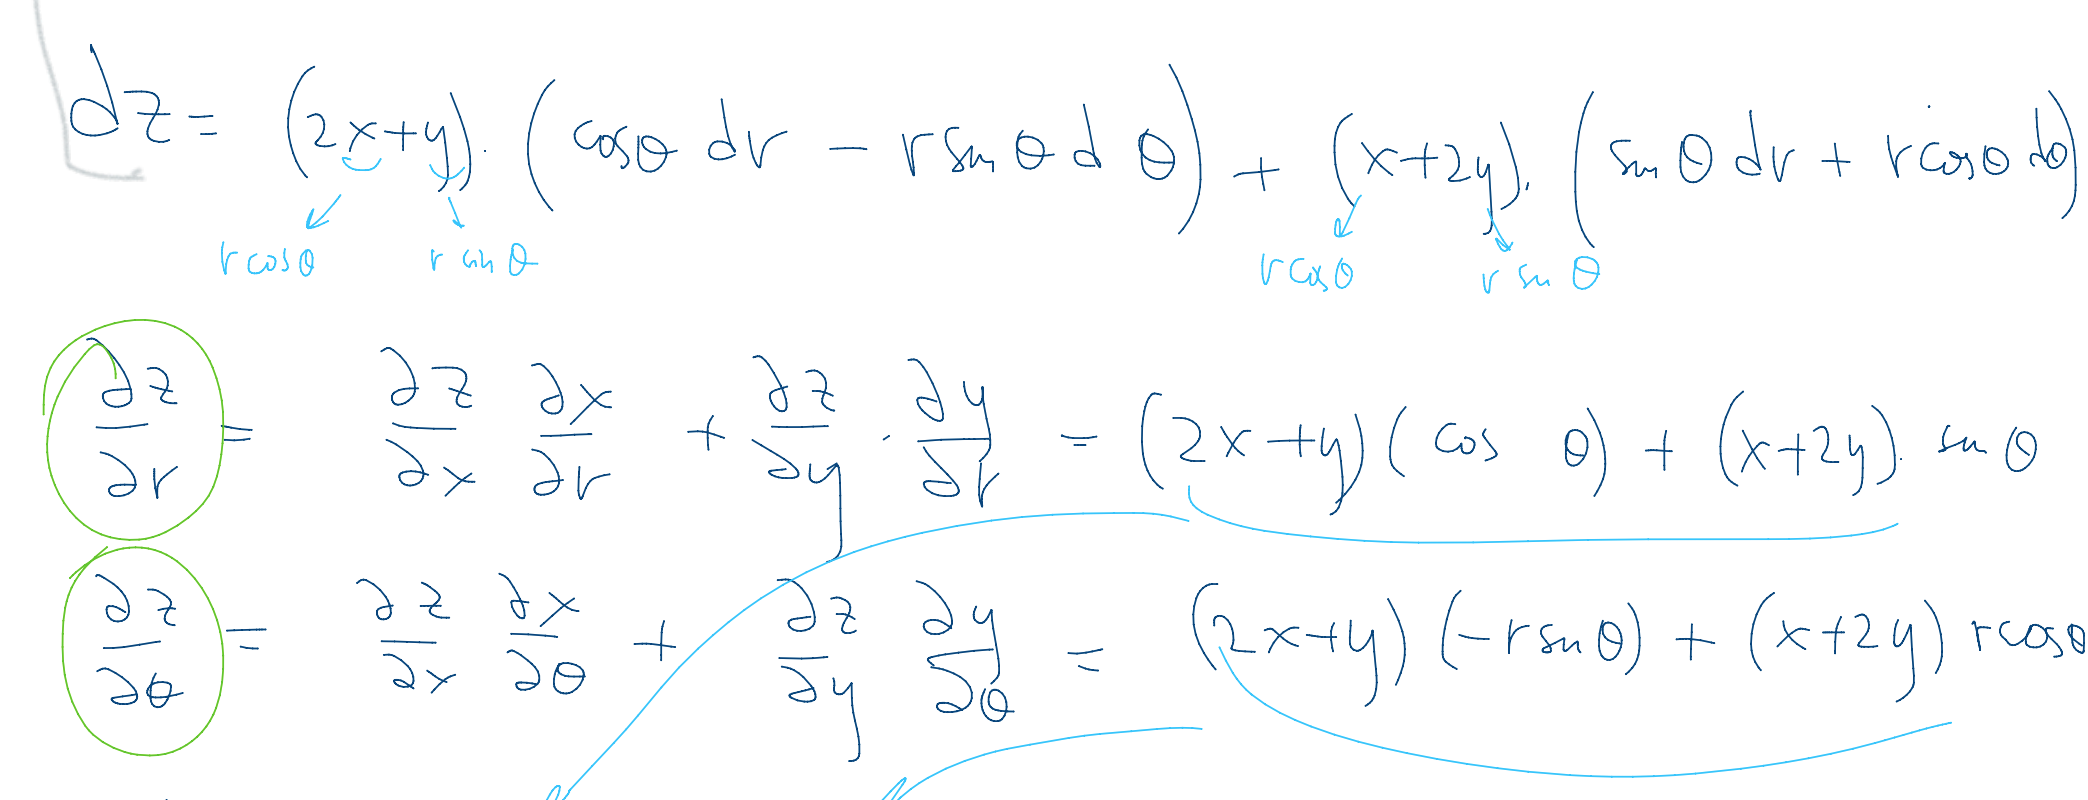 dz = (2x+y) · (cosθ dr − r sinθ dθ) + (x+2y) · (sinθ dr + r cosθ dθ)
r cosθ r sinθ r cosθ r sinθ
∂z/∂r = ∂z/∂x ∂x/∂r + ∂z/∂y · ∂y/∂r = (2x+y)(cos θ) + (x+2y) · sinθ
∂z/∂θ = ∂z/∂x ∂x/∂θ + ∂z/∂y ∂y/∂θ = (2x+y)(−r sinθ) + (x+2y) r cosθ